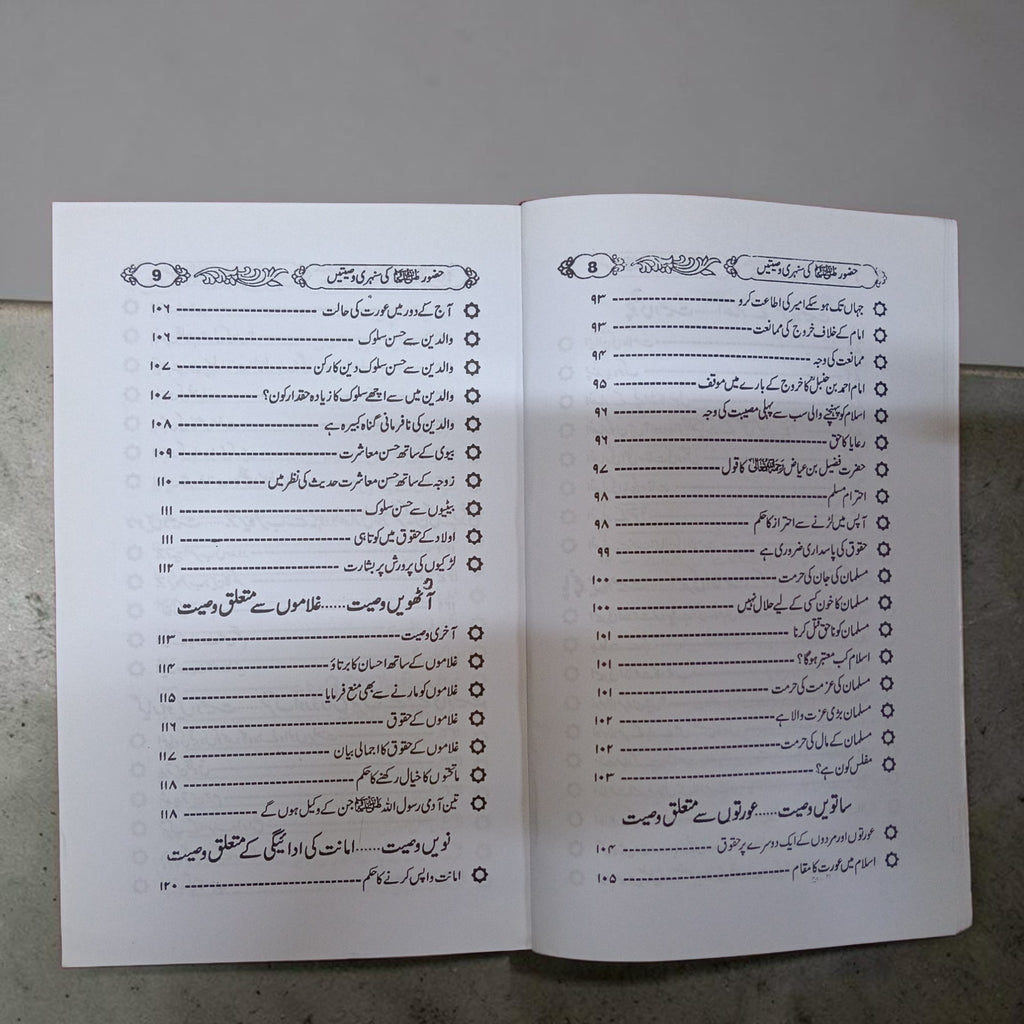 حضور ﷺ کی سنہری وصیتیں 8
جہاں تک ہو سکے امیر کی اطاعت کرو ۹۳
امام کے خلاف خروج کی ممانعت ۹۳
ممانعت کی وجہ ۹۴
امام احمد بن حنبلؒ کا خروج کے بارے میں موقف ۹۵
اسلام کو پہنچنے والی سب سے پہلی مصیبت کی وجہ ۹۶
رعایا کا حق ۹۶
حضرت فضیل بن عیاض رحمۃ اللہ علیہ کا قول ۹۷
احترام مسلم ۹۸
آپس میں لڑنے سے احتراز کا حکم ۹۸
حقوق کی پاسداری ضروری ہے ۹۹
مسلمان کی جان کی حرمت ۱۰۰
مسلمان کا خون کسی کے لیے حلال نہیں ۱۰۰
مسلمان کو ناحق قتل کرنا ۱۰۱
اسلام کب معتبر ہوگا؟ ۱۰۱
مسلمان کی عزت کی حرمت ۱۰۱
مسلمان بڑی عزت والا ہے ۱۰۲
مسلمان کے مال کی حرمت ۱۰۲
مفلس کون ہے؟ ۱۰۳
ساتویں وصیت......عورتوں سے متعلق وصیت
عورتوں اور مردوں کے ایک دوسرے پر حقوق ۱۰۴
اسلام میں عورت کا مقام ۱۰۵
حضور ﷺ کی سنہری وصیتیں 9
آج کے دور میں عورت کی حالت ۱۰۶
والدین سے حسن سلوک ۱۰۶
والدین سے حسن سلوک دین کا رکن ۱۰۷
والدین میں سے اچھے سلوک کا زیادہ حقدار کون؟ ۱۰۷
والدین کی نافرمانی گناہ کبیرہ ہے ۱۰۸
بیوی کے ساتھ حسن معاشرت ۱۰۹
زوجہ کے ساتھ حسن معاشرت حدیث کی نظر میں ۱۱۰
بیٹیوں سے حسن سلوک ۱۱۱
اولاد کے حقوق میں کوتاہی ۱۱۱
لڑکیوں کی پرورش پر بشارت ۱۱۲
آٹھویں وصیت......غلاموں سے متعلق وصیت
آخری وصیت ۱۱۳
غلاموں کے ساتھ احسان کا برتاؤ ۱۱۴
غلاموں کو مارنے سے بھی منع فرمایا ۱۱۵
غلاموں کے حقوق ۱۱۶
غلاموں کے حقوق کا اجمالی بیان ۱۱۷
ماتحتوں کا خیال رکھنے کا حکم ۱۱۸
تین آدمی رسول اللہ ﷺ جن کے وکیل ہوں گے ۱۱۸
نویں وصیت......امانت کی ادائیگی کے متعلق وصیت
امانت واپس کرنے کا حکم ۱۲۰